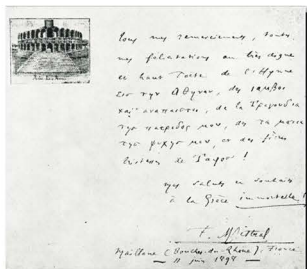 Tous mes remerciements, toutes
mes félicitations au très digne
et haut Poète de l'Hymne
εισ την Αθηναν, des ιαμβοι
και αναπαιστοι, de la
τησ πατριδος μου, des τα ματια
τησ ψυχησ μου, et des
de Ταφοσ !
mes saluts et souhaits
à la Grèce immortelle !
F. Mistral
Maillane (Bouches-du-Rhône), France
11 juin